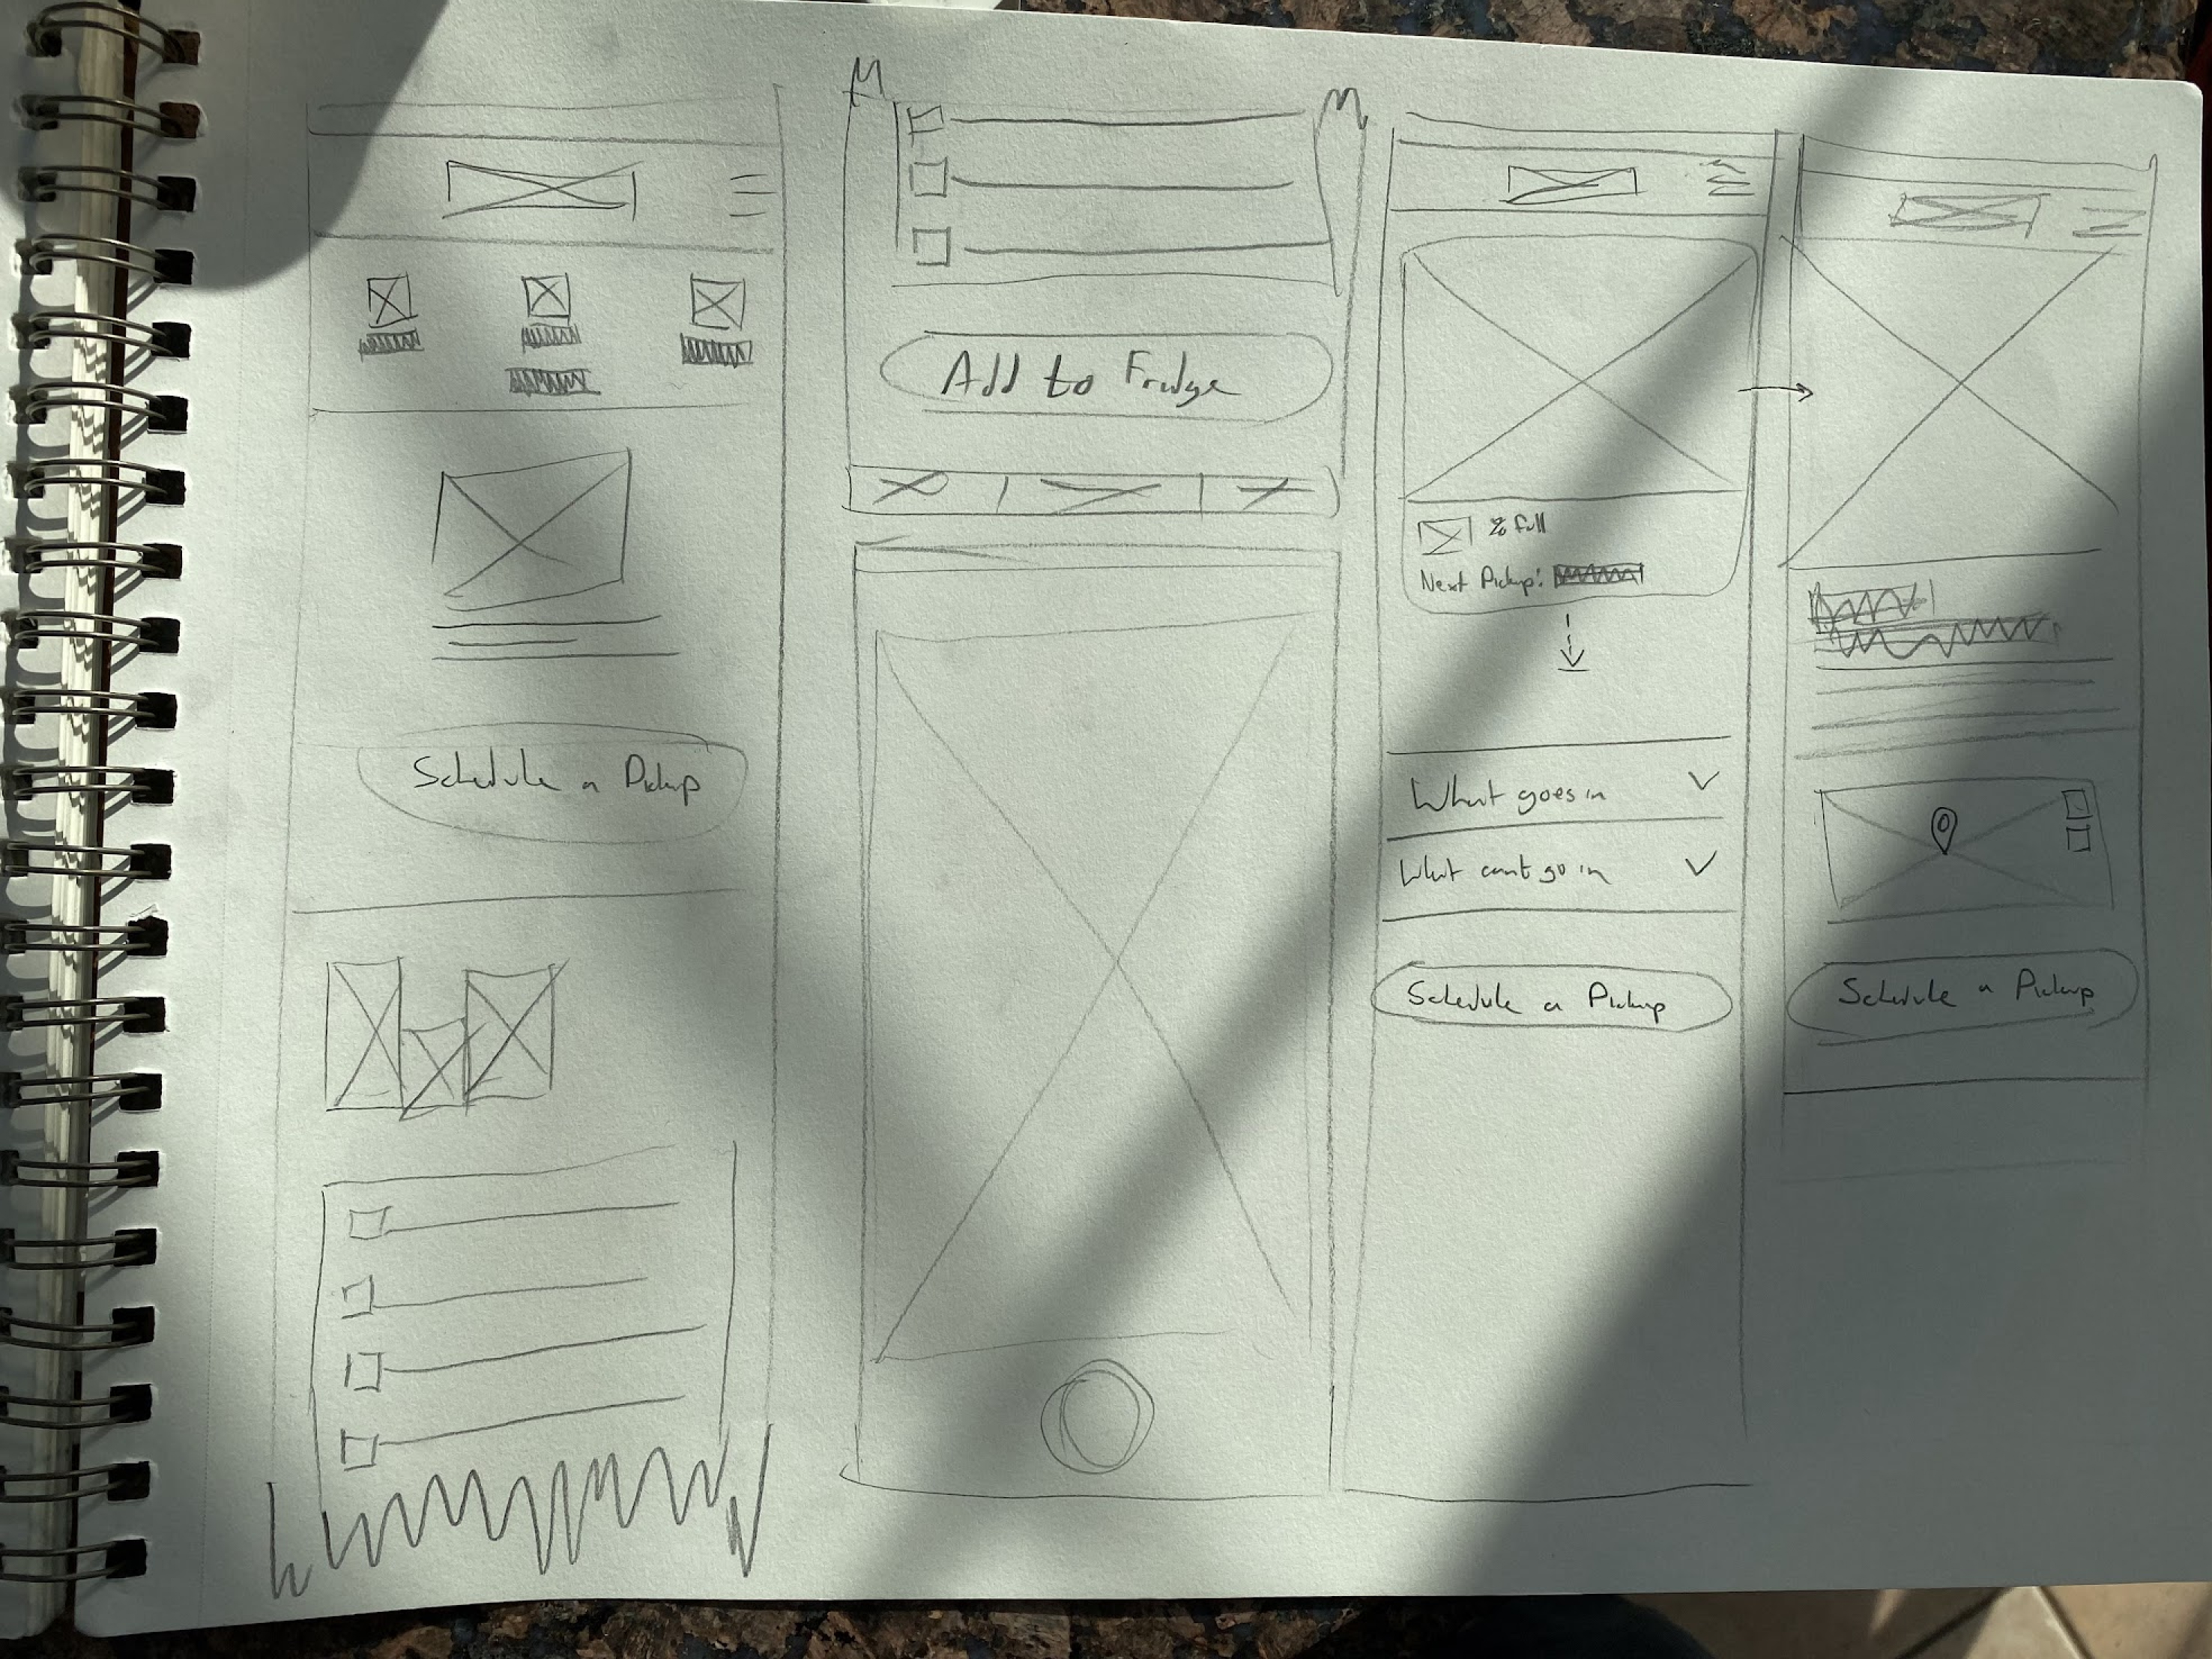 Schedule a Pickup
Add to Fridge
% full
Next Pickup:
What goes in
What cant go in
Schedule a Pickup
Schedule a Pickup